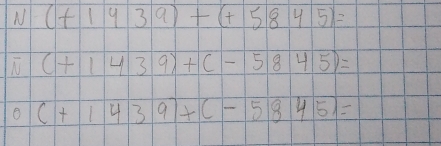 N (+1439)+(+5845)=
Ñ (+1439)+(-5845)=
O (+1439)+(-5845)=